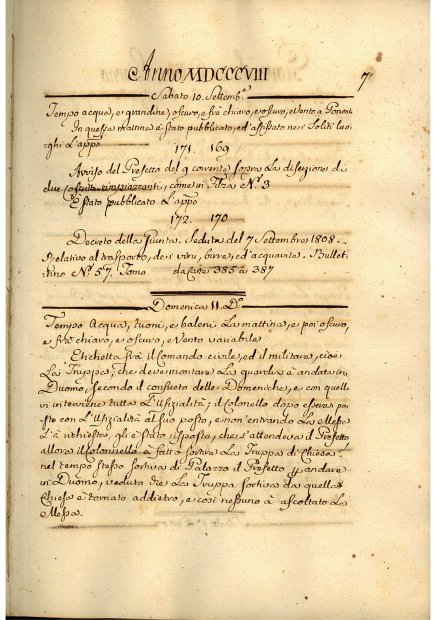 Anno MDCCCVIII
7
Sabato 10. Settemb.e
Tempo acqua, e grandine, oscuro, e frà chiaro, e oscuro, e Vento a Ponente
In questa mattina è stato pubblicato, ed' affissato ne i Soliti luo-
ghi L'appo
171. 169
Avviso del Prefetto del 9 corrente sopra La diserzione di
due Coscritti, come in Filza N.o 3
È stato pubblicato L'appo
172. 170
Decreto della Giunta. Seduta del 7 Settembre 1808.
Relativo al trasporto, de i vini, birre, ed' acquavite. Bullet-
tino N.o 57. Tomo da Carte 385 à 387
Domenica 11. D.o
Tempo Acqua, tuoni, e baleni La mattina, e poi oscuro,
e frà chiaro, e oscuro, e Vento variabile
Etichetta frà il Comando civile, ed il militare, cioè
La Truppa, che deve montare La guardia è andata in
Duomo, secondo il consueto delle Domeniche, e con quella
interviene tutta L'Ufizialità; il Colonello dopo essersi po-
sto con L'Ufizialità al suo posto, e non entrando La Messa
L'à richiesta, gli è stato risposto, che s'attendeva il Prefetto
allora il Colonnello à fatto sortire La Truppa di Chiesa
nel tempo stesso sortiva di Palazzo il Prefetto p andare
in Duomo, veduto che La Truppa sortiva da quella
Chiesa è tornato addietro, e così nessuno à ascoltato La
Messa.